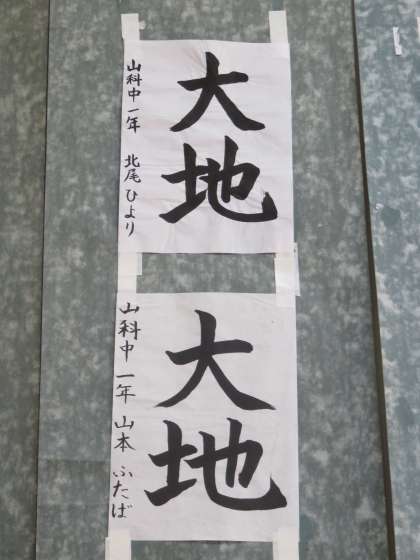 大地
山科中一年 北尾ひより
大地
山科中一年 山本ふたば